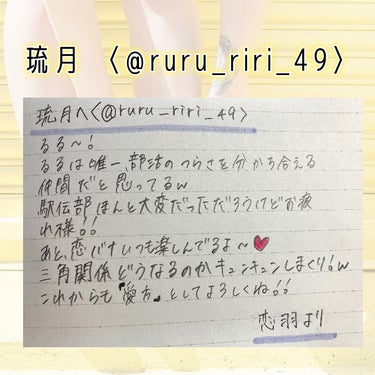 琉月 〈@ruru_riri_49〉
琉月へ〈@ruru_riri_49〉
るる〜!
るるは唯一、部活のつらさを分かち合える
仲間だと思ってるw
駅伝部ほんと大変だっただろうけどお疲
れ様!!
あと、恋バナいつも楽しんでるよ〜❤
三角関係どうなるのかキュンキュンしまくり!w
これからも『愛方』としてよろしくね!!
恋羽より